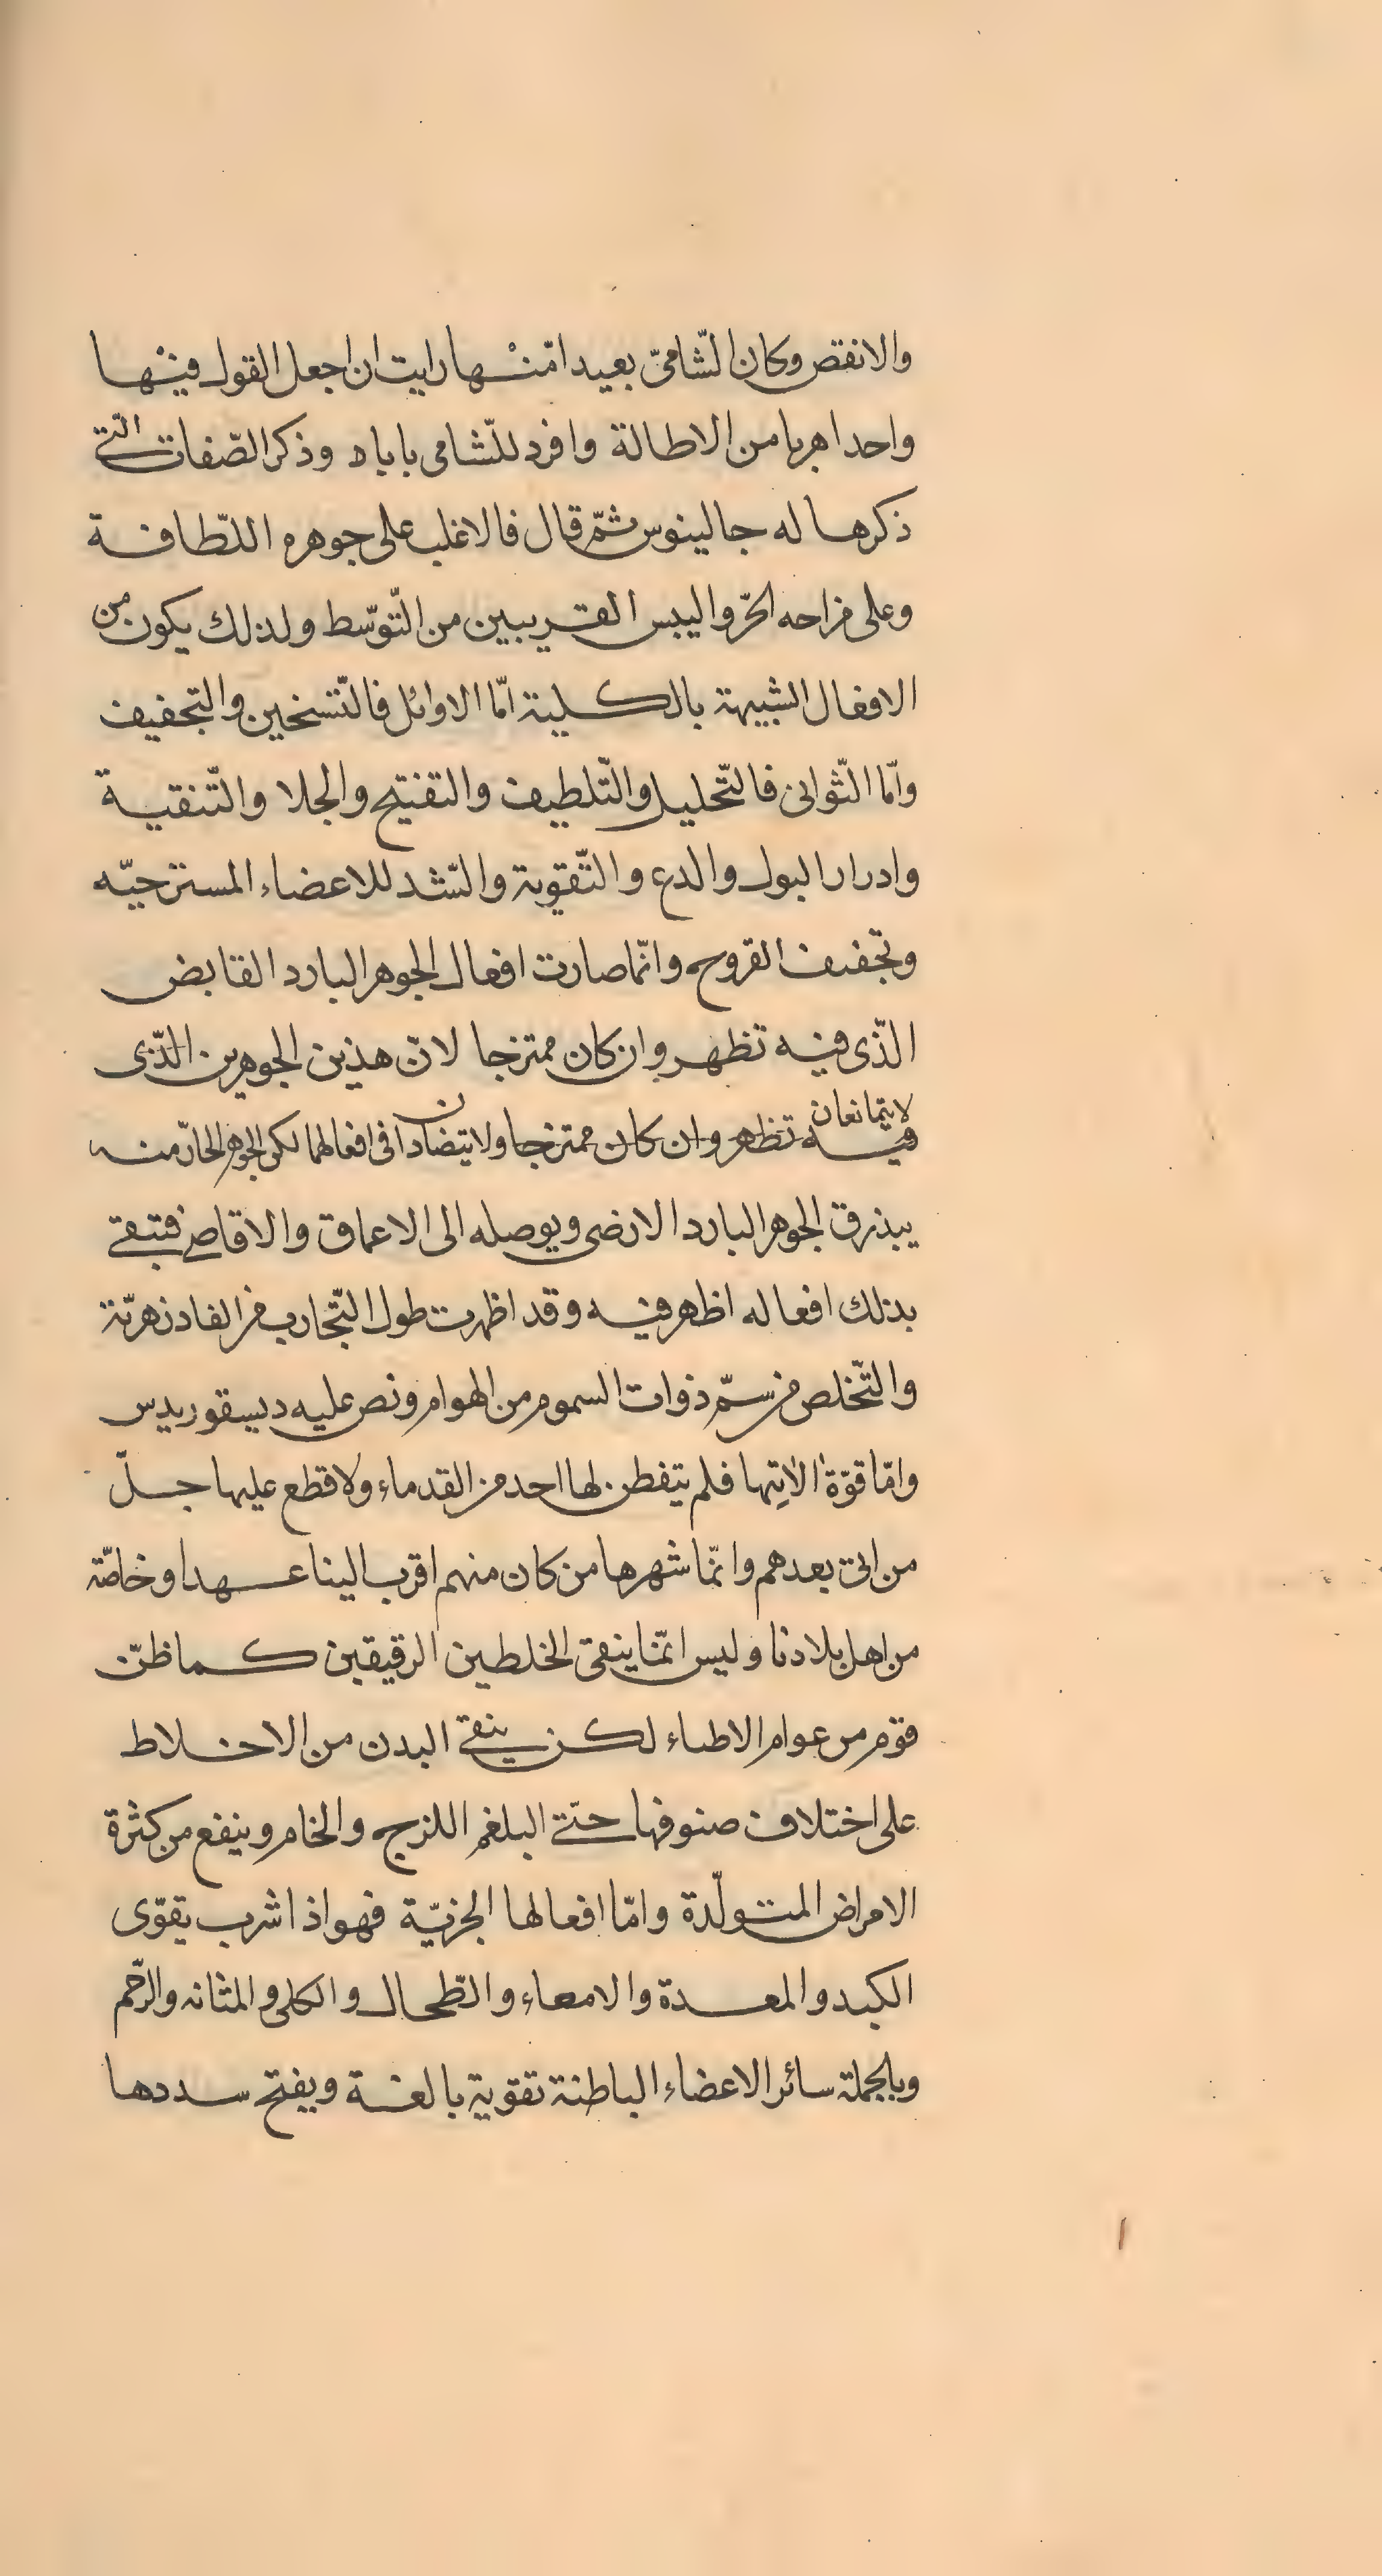 والانقص وكان الشّامىّ بعيدا منْها رايت ان اجعل القول فيْها
واحدا هربا من الاطالة وافرد للشّامى بابا ه وذكر الصّفات الّتى
ذكرها له جالينوس ثمّ قال فالاغلب على جوهره اللّطافة
وعلى مزاجه الحرّ واليبس القريبين من التّوسّط ولذلك يكون من
الافعال الشبيهة بالكلية امّا الاوائل فالتّسخين والتجفيف
وامّا الثّوانى فالتّحليل والتّلطيف والتفتيح والجلا والتّنقية
وادرار البول والدع والتّقوية والشّد للاعضاء المسترخيّه
وتجفيف القروح وانّما صارت افعال الجوهر البارد القابض
الّذى فيه تظهر وان كان ممتزجا لانّ هذين الجوهرين الّذى
لا يتمانعان
فيه تظهر وان كان ممتزجا ولا يتضادان فى افعالهما لكن الجوهر الحارّ منه
يبذرق الجوهر البارد الارضى ويوصله الى الاعماق والاقاصى فتبقى
بذلك افعاله اظهر فيه وقد اظهرت طول التّجارب من الفادزهريّة
والتّخلص من سمّ ذوات السموم من الهوام ونص عليه ديسقوريدس
وامّا قوّة الاتِها فلم يتفطن لها احد من القدماء ولا قطع عليها جلّ
من اتى بعدهم وانّما شهرها من كان منهم اقرب الينا عهدا وخاصّة
من اهل بلادنا وليس انّما ينقى الخلطين الرقيقين كما ظنّ
قوم من عوام الاطباء لكن ينقى البدن من الاخلاط
على اختلاف صنوفها حتّى البلغم اللزج والخام وينفع من كثرة
الامراض المتولّدة وامّا افعالها الجزئيّة فهو اذا شرب يقوّى
الكبد والمعدة والامعاء والطّحال والكلى والمثانه والرّحم
وبالجملة سائر الاعضاء الباطنة تقوية بالغة ويفتح سددها
١